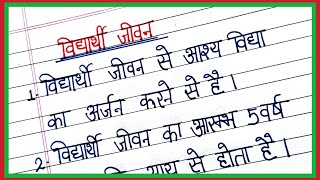 विद्यार्थी जीवन
1. विद्यार्थी जीवन से आश्य विद्या
का अर्जन करने से है।
2. विद्यार्थी जीवन का आरम्भ 5 वर्ष
से होता है।